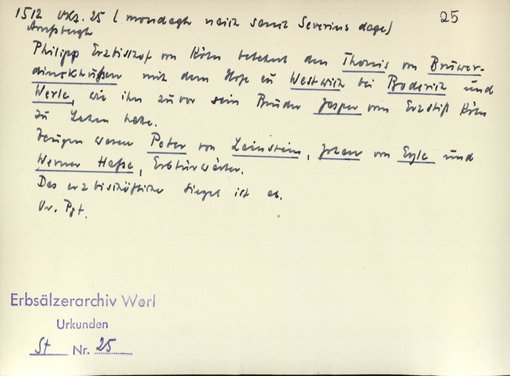 1512 Okt. 25 (mondagh neist sanct Severins dage) 25
Arnsbergh
Philipp Erzbischof von Köln belehnt den Thonis von
mit dem Hofe zu Westwich bei Boderich und
Werle, wie ihn zuvor sein Bruder Jasper vom Erzstift Köln
zu Lehen hatte.
Zeugen waren Peter von Leinstein, Johan von Eyle und
Werner Hasse, Erbtürwärter.
Das erzbischöfliche Siegel ist ab.
Or. Pgt.
Erbsälzerarchiv Werl
Urkunden
St Nr. 25